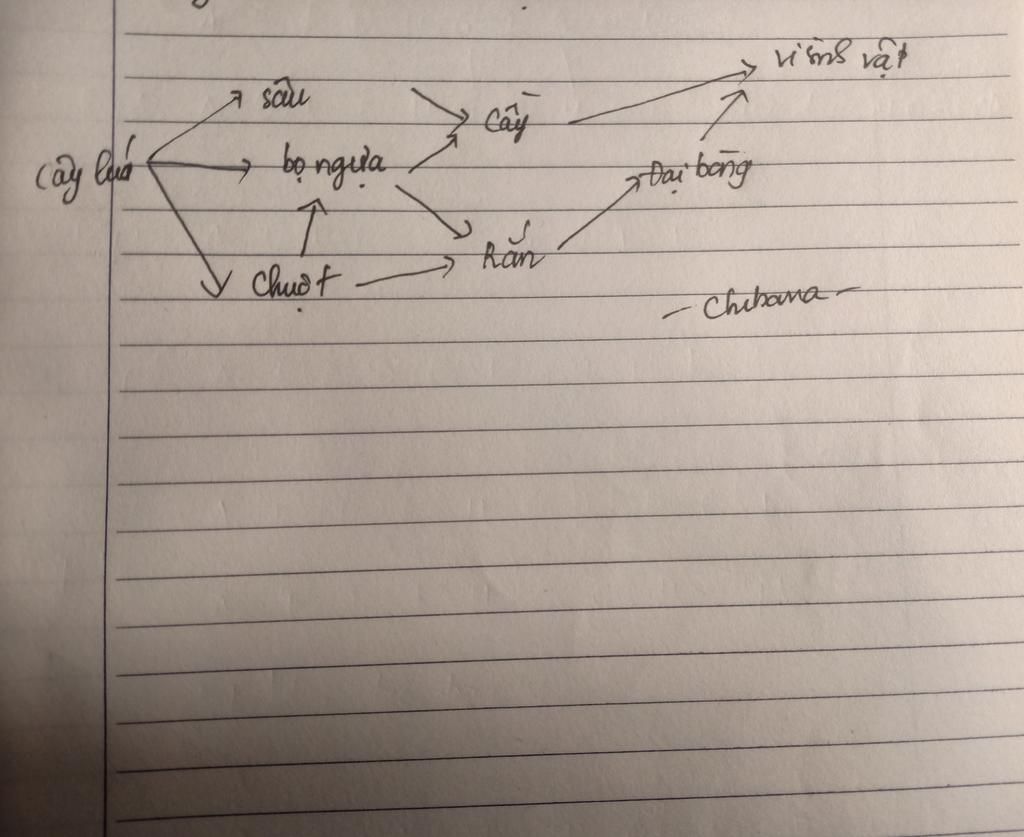 sâu
Cầy
vi sinh vật
Cây lúa
bọ ngựa
Đại bàng
Chuột
Rắn
- Chibana -